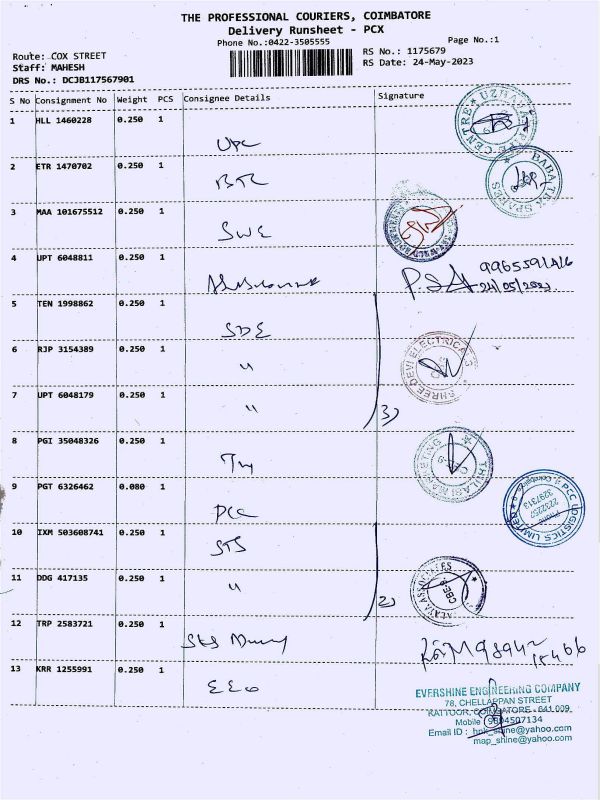 THE PROFESSIONAL COURIERS, COIMBATORE
Delivery Runsheet - PCX
Phone No.:0422-3505555
Page No.:1
Route: COX STREET
RS No.: 1175679
Staff: MAHESH
RS Date: 24-May-2023
DRS No.: DCJB117567901
S No Consignment No Weight PCS Consignee Details Signature
1 HLL 1460228 0.250 1
UPC
2 ETR 1470702 0.250 1
BTC
BABA TEA SPARES
3 MAA 101675512 0.250 1
SWE
4 UPT 6048811 0.250 1
24/05/2023
5 TEN 1998862 0.250 1
SDE
6 RJP 3154389 0.250 1
"
SHREE DEVI ELECTRICALS
7 UPT 6048179 0.250 1
"
3)
8 PGI 35048326 0.250 1
THULASI MARKETING
9 PGT 6326462 0.080 1
PCC
PCC LOGISTICS LIMITED
Phone
2232252
3297313
10 IXM 503608741 0.250 1
STS
11 DDG 417135 0.250 1
"
2)
ASSOCIATES
CBE-9
12 TRP 2583721 0.250 1
13 KRR 1255991 0.250 1
EEC
EVERSHINE ENGINEERING COMPANY
78, CHELLAPPAN STREET
KATTOOR, COIMBATORE - 641 009.
Mobile : 9804507134
Email ID : hnk_shine@yahoo.com
map_shine@yahoo.com